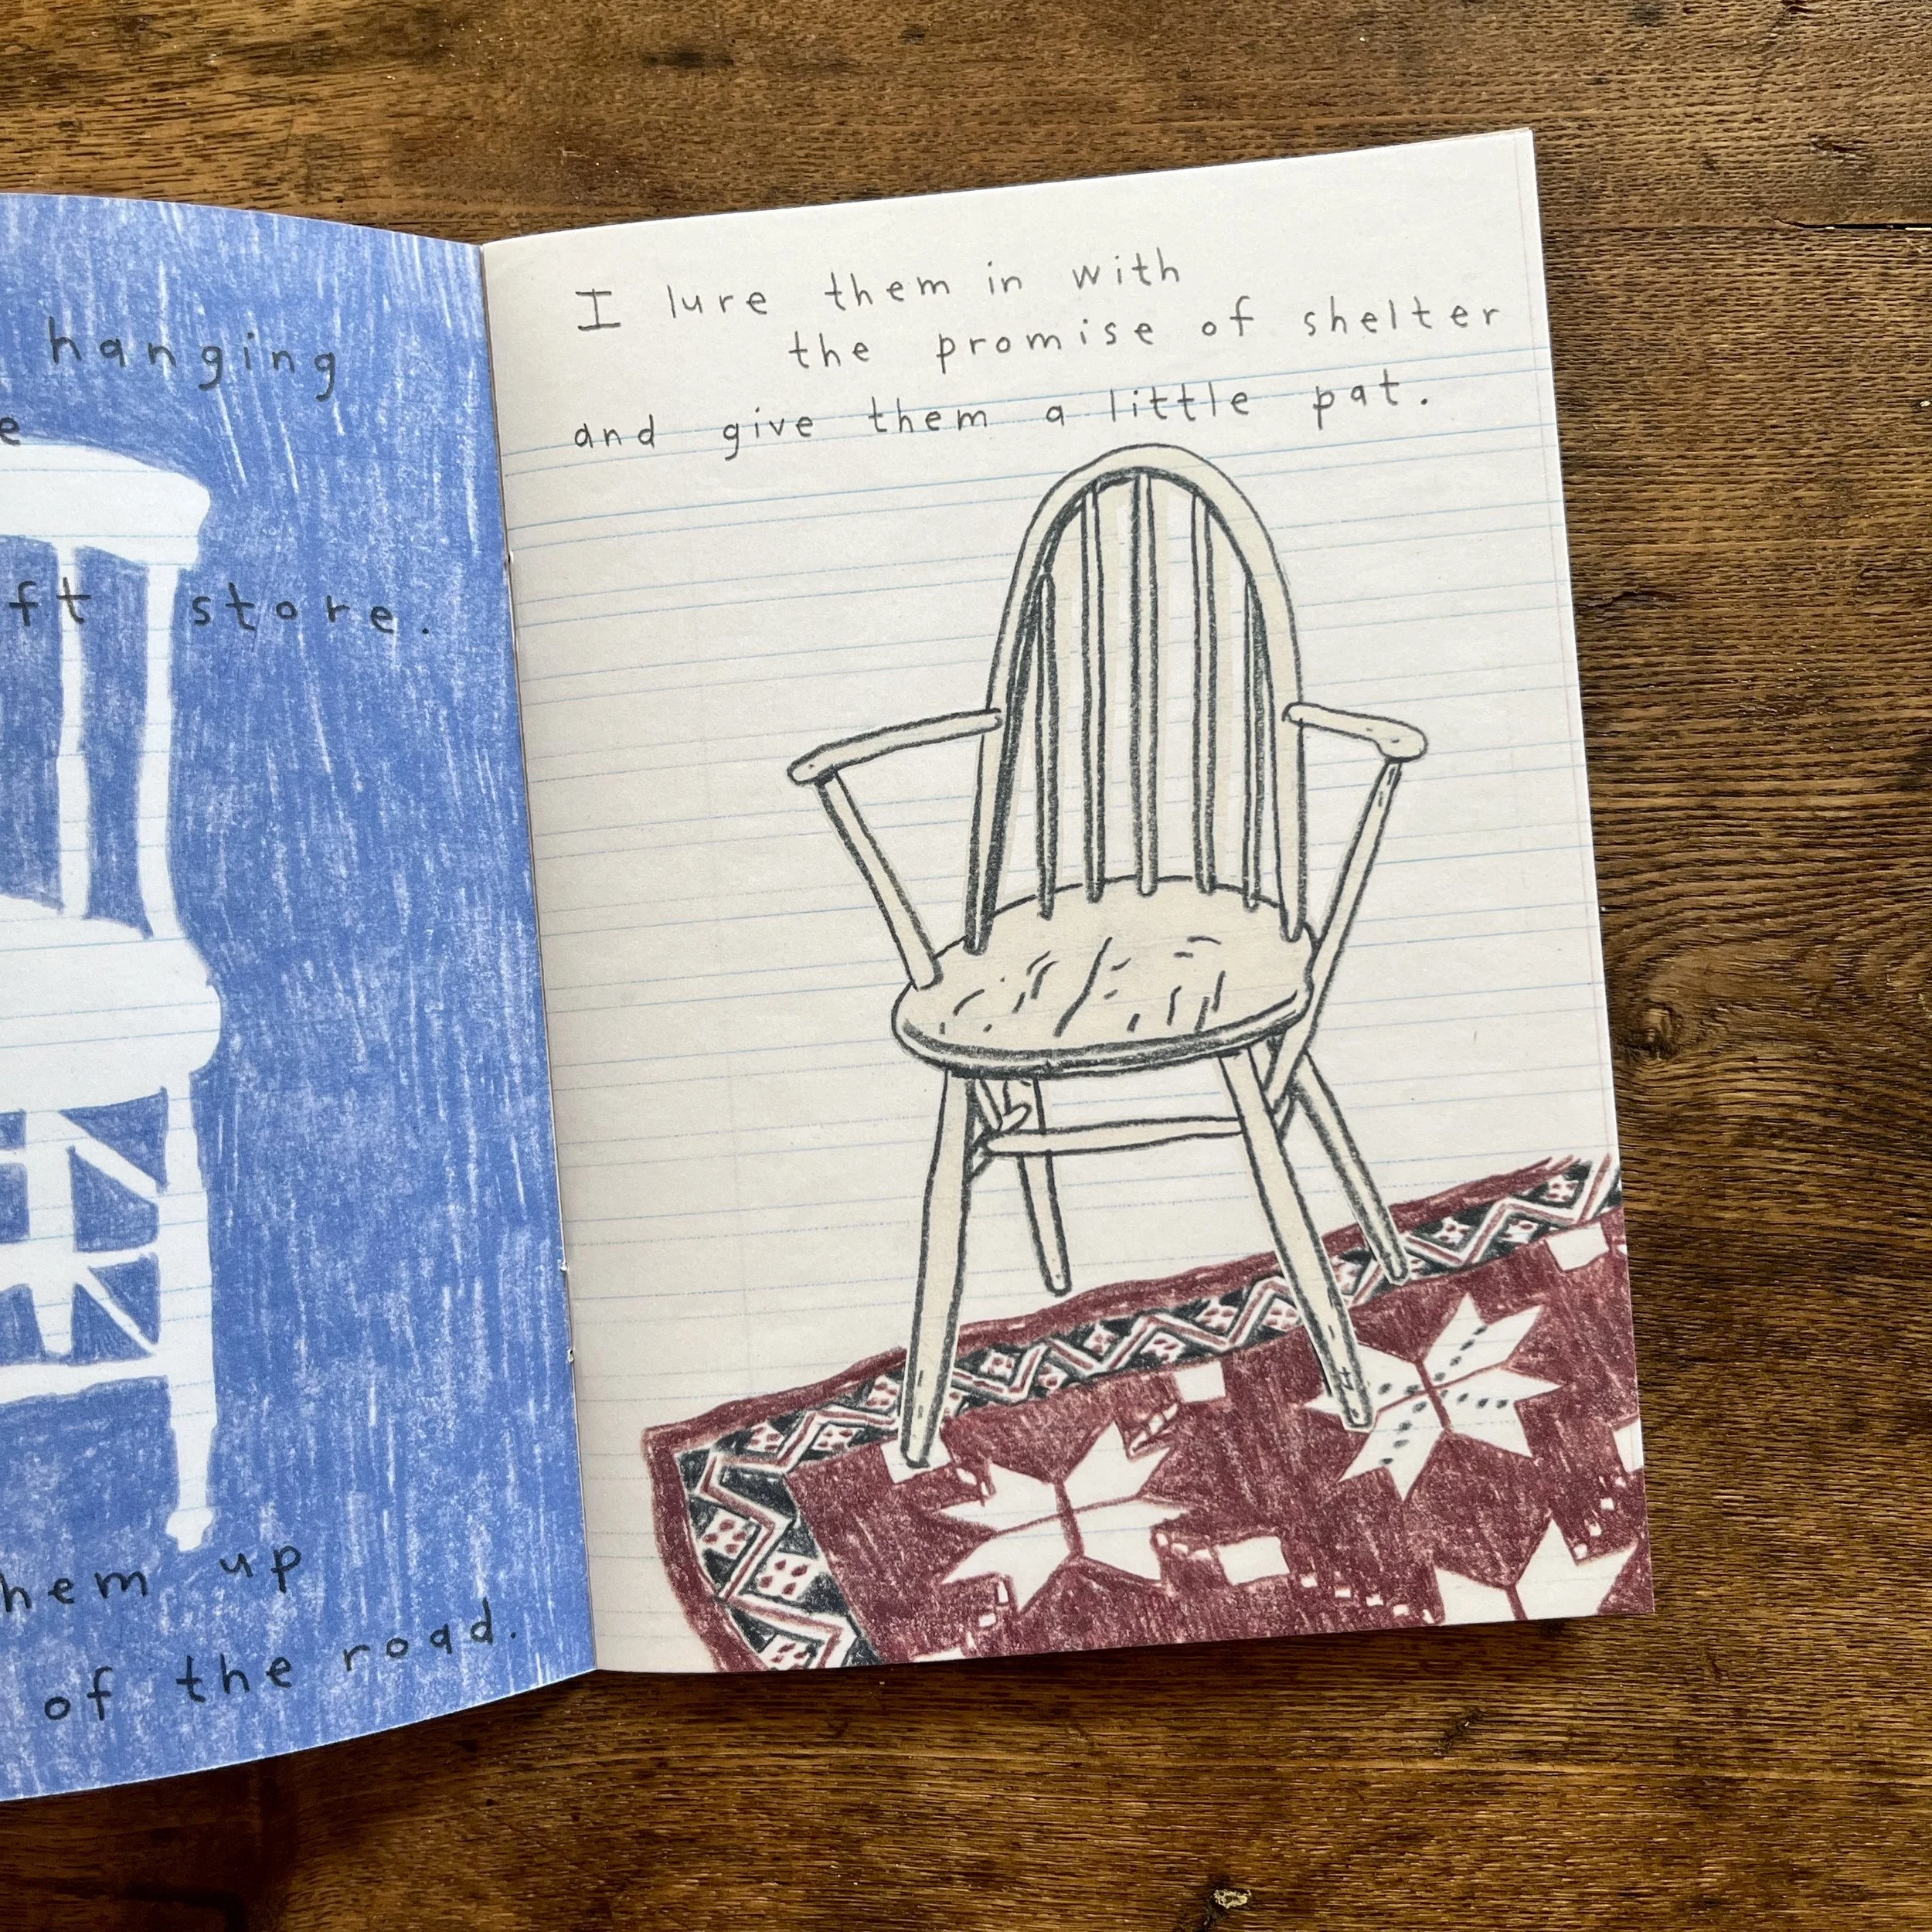 hanging
e
ft store.
hem up
of the road.
I lure them in with
the promise of shelter
and give them a little pat.